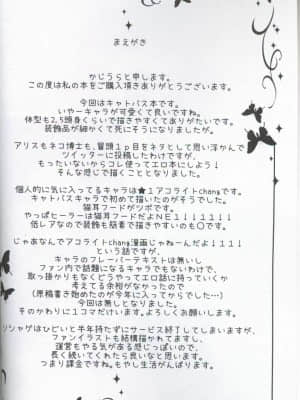 まえがき
かじうらと申します。
この度は私の本をご購入頂きありがとうございます。
今回はキャトバス本です。
いやーキャラが可愛くて良いですね。
体型も2.5頭身くらいで描きやすくてありがたいです。
装飾品が細かくて死にそうになりましたが。
アリスもネコ博士も、冒頭1p目をネタとして思い浮かんで
ツイッターに投稿したわけですが、
もったいないからコレ使ってエロ本にしよう↓
そんな感じで描くこととなりました。
個人的に気に入ってるキャラは★1アコライトchangです。
キャトバスキャラで初めて描いたのがそうでした。
猫耳フードがツボです。
やっぱヒーラーは猫耳フードだよNE!!!!!!
低レアなので装飾も簡素で描きやすいのも〇です。
じゃあなんでアコライトchang漫画じゃねーんだよ!!!!
という話ですが、
キャラのフレーバーテキストは無いし
ファン内で話題になるキャラでもないわけで、
取っ掛かりもなくどうやってエロ話に持っていくか
考える余裕がなかったので
(原稿書き始めたのが今年に入ってからでした…)
今回は無しとなりました。
そのかわりに1コマだけいます。よろしくお願いします。
ソシャゲはひどいと半年持たずにサービス終了してしまいますが、
ファンイラストも結構描かれてますし、
運営もやる気がある感じっぽいので、
長く続いてくれたら良いなと思います。
つまり課金ですね。もやし生活がんばります。